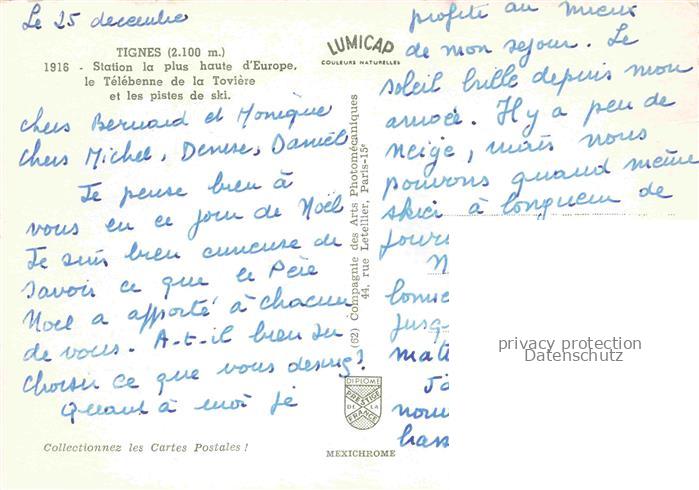 Le 25 decembre
TIGNES (2.100 m.)
1916 - Station la plus haute d'Europe,
le Télébenne de la Tovière
et les pistes de ski.
LUMICAP
COULEURS NATURELLES
chers Bernard et Monique
chers Michel, Denise, Daniel
Je pense bien à
vous en ce jour de Noël
Je suis bien curieuse de
savoir ce que le Père
Noël a apporté à chacun
de vous. A-t-il bien su
choisir ce que vous desirez?
Quant à moi je
profite au mieux
de mon sejour. Le
soleil brille depuis mon
arrivée. Il y a peu de
neige, mais nous
pouvons quand même
skier à longueur de
jour
N
Jusq
mat
nou
bass
(62) Compagnie des Arts Photomécaniques
44, rue Letellier, Paris-15e
privacy protection
Datenschutz
DIPLOME
PRESTIGE
DE LA
FRANCE
Collectionnez les Cartes Postales !
MEXICHROME